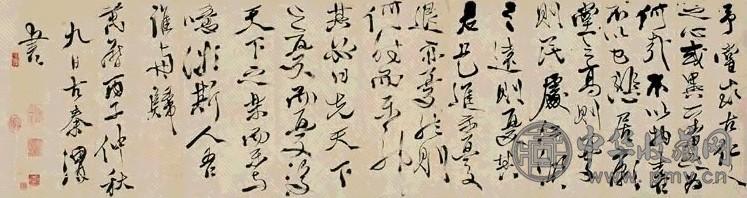 予嘗求古仁人
之心或異二者之為
何哉不以物喜
不以己悲居廟
堂之高則憂
其民處江湖
之遠則憂其
君是進亦憂
退亦憂然則
何時而樂耶
其必曰先天下
之憂而憂後
天下之樂而樂與
噫微斯人吾
誰與歸
萬曆丙子仲秋
九日古秦
書
中华收藏网